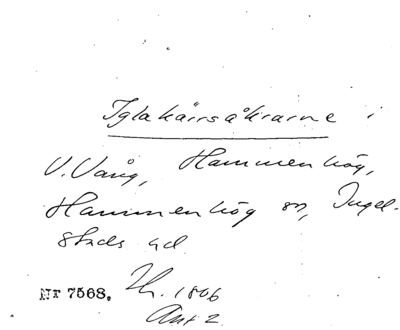 Iglakärrsåkrarne i
V. Vång, Hammenhög,
Hammenhög sn, Ingel-
stads hd
Nr 7568. Th. 1806
Akt 2